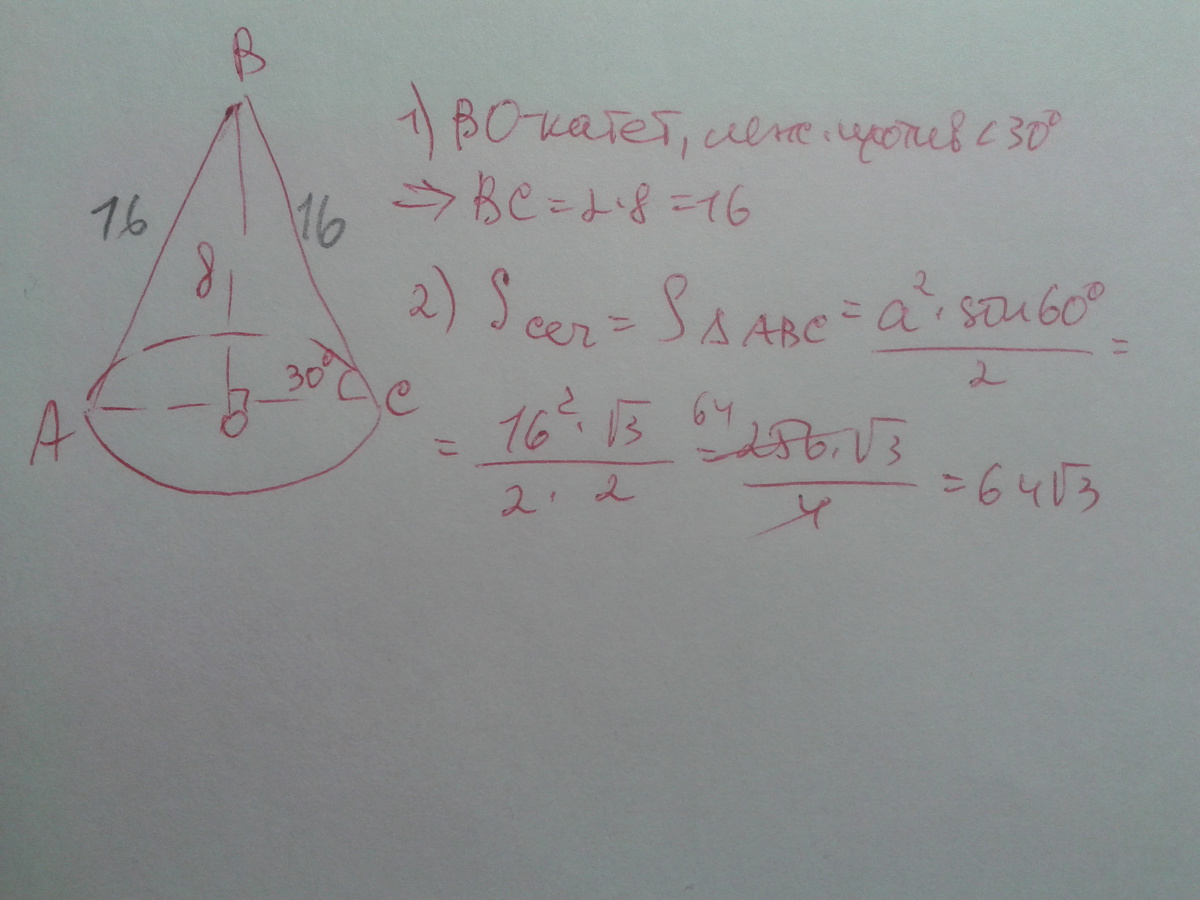 B
16
16
8
30°
A
O
C
1) BO-катет, леж. против < 30°
⇒ BC = 2·8 = 16
2) S сеч = S Δ ABC = a²·sin60° / 2 =
= 16²·√3 / 2·2 = 64 256·√3 / 4 = 64√3